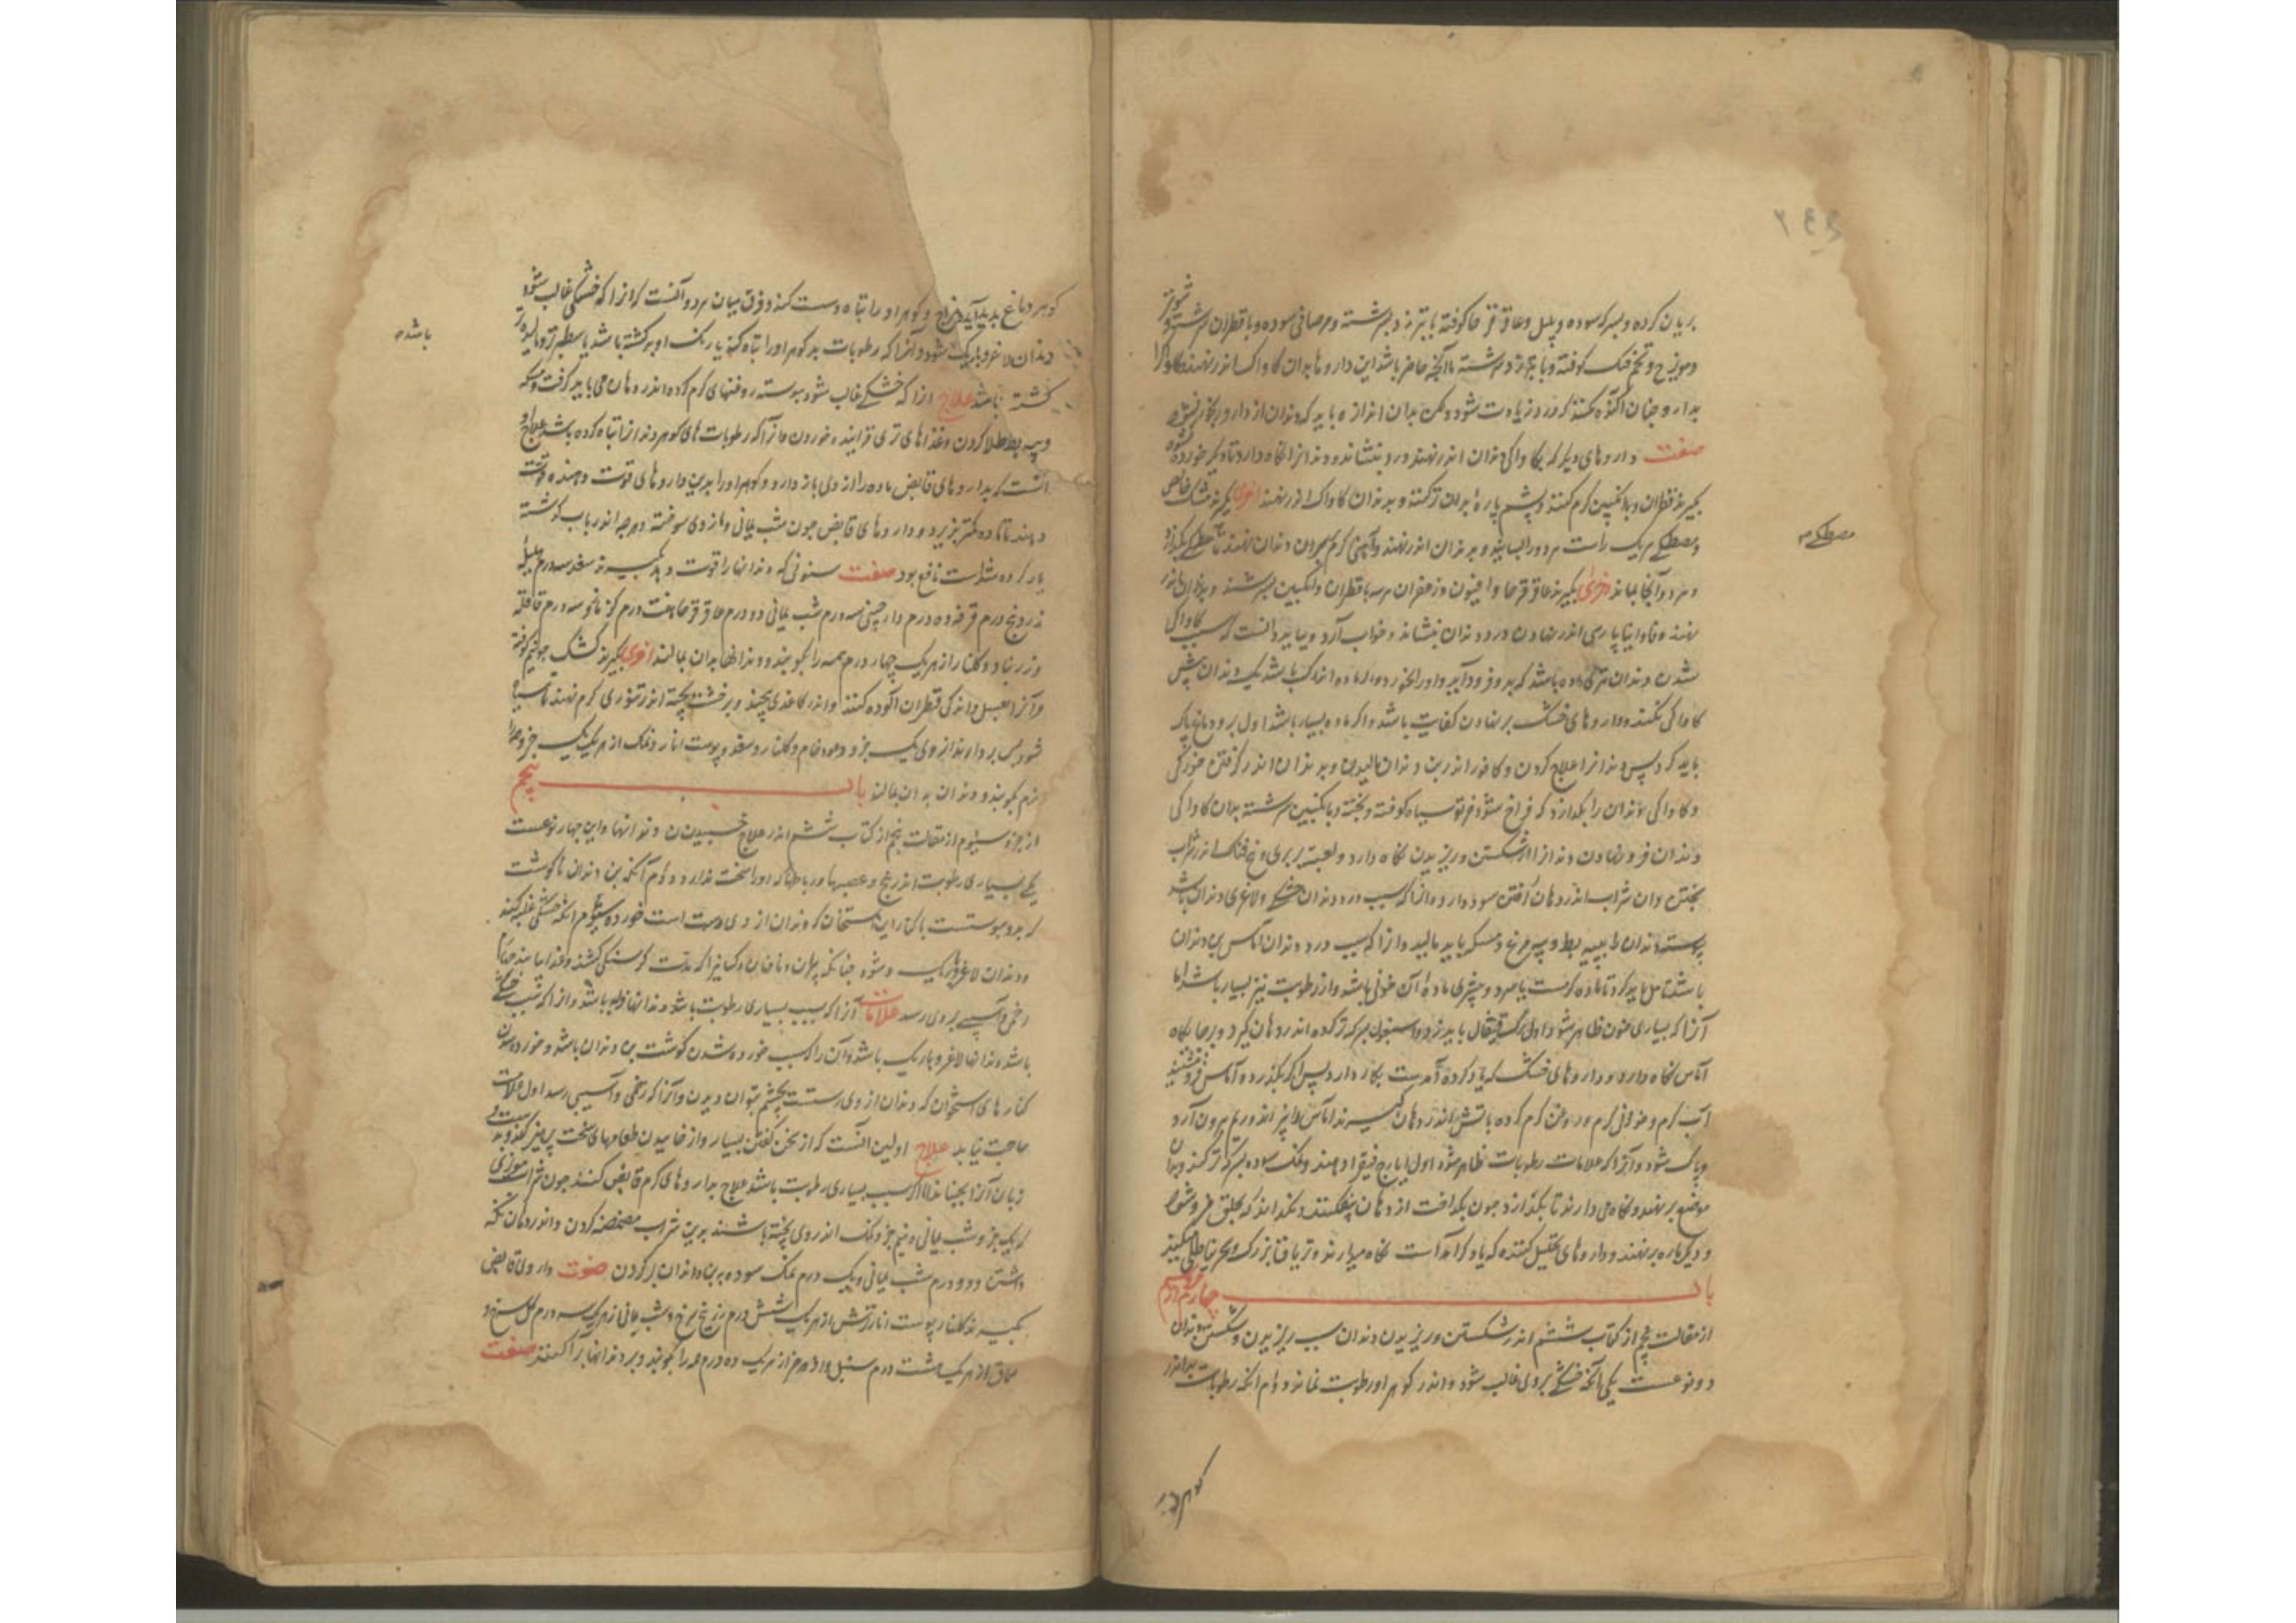 بریان کرده و بسرکه سوده و پلپل و عاقرقرحا کوفته با بیرزد بسرشته و مر صافی سوده و با قطران سرشته و شونیز
و مویزج و تخم کوفته و با بیرزد سرشته تا آنچه حاضر باشد این داروها بدان کاواک اندر نهند و کاواک را
بدارو چنان آکنده نکنند که درد زیادت شود و لکن بدان اندازه باید که دندان از دارو
صفت داروهای دیگر که بکاواکی دندان اندر نهند درد بنشاند و دندانرا نگاه دارد تا دیگر خورده نشود
بگیرند قطران و با انگبین گرم کنند و پشم پاره بدان تر کنند و بدندان کاواک اندر نهند اخری بگیرند مشک خالص
و مصطکی هر یک راست هر دو را بسایند و بدندان اندر نهند و آهنی گرم بیرون دندان نهند تا مصطکی بگدازد
و هر دو آنجا بماند اخری بگیرند عاقرقرحا و افیون و زعفران هر سه با قطران و انگبین بسرشند و بدندان اندر
نهند و فاوانیا پارسی اندر نهادن درد دندان بنشاند و خواب آرد و بباید دانست که سبب کاواک
شدن دندان تری ماده باشد که بدو فرود آید و او را بخورد و اگر ماده اندک باشد یک دندان بیش
کاواک نکند و داروهای خشک بر نهادن کفایت باشد و اگر ماده بسیار باشد اول بر و دماغ پاک
باید کرد پس دندانرا علاج کردن و کافور اندر بن دندان مالیدن و بدندان اندر گرفتن خوردگی
و کاواکی دندان را نگذارد که فراخ شود خرتوت سیاه کوفته و بیخته و با انگبین سرشته بدان کاواکی
دندان فرو نهادن دندانرا از شکستن و ریزیدن نگاه دارد و لعبت بربری و بیخ اندر شراب
پختن و آن شراب اندر دهان گرفتن سود دارد و آنرا که سبب درد دندان خشکی و لاغری دندان باشد
پیوسته دندان را به پیه بط و پیه مرغ و مسکه باید مالید و آنرا که سبب درد دندان آماس بن دندان
باشد تأمل باید کرد تا ماده گرمست یا سرد و بیشتری ماده آن خونی باشد و از رطوبت نیز بسیار باشد اما
آنرا که بسیاری خون ظاهر شود اول رگ قیفال باید زد و اسبغول بسرکه تر کرده اندر دهان گیرد و بر جایگاه
آماس نگاه دارد و داروهای خشک که یاد کرده آمدست بکار دارد پس اگر بگذرد و آماس فرو ننشیند
آب گرم و می گرم و روغن گرم کرده باتش اندر دهان گیرند آماس را بپزاند و ریم بیرون آرد
و پاک شود و آنرا که علامات رطوبات ظاهر شود اول ایارج فیقرا دهند و نمک سوده بسرکه تر کنند و بدان
موضع بر نهند و نگاه می دارند تا بگدازد چون بگداخت از دهان بیفکنند و نگذارند که بحلق فرو شود
و دیگر باره بر نهند و داروهای تحلیل کننده که یاد کرده آمدست نگاه میدارند و تریاق بزرگ و سجزینا طلی میکنند
باب چهارم از جزو سیم
از مقالت پنجم از کتاب ششم اندر شکستن و ریزیدن دندان سبب ریزیدن و شکستن دندان
دو نوعست یکی آنکه خشکی بر وی غالب شود و اندر گوهر او رطوبت نماند دوم آنکه رطوبات بد اندر
گوهر دما
مصطکی
گوهر دماغ پدید آید و مزاج و گوهر او را تباه و سست کند و فرق میان هر دو آنست که آنرا که خشکی غالب شود
دندان لاغر و باریک شود و آنرا که رطوبات بد گوهر او را تباه کند یا رنگ او بر گشته باشد یا سطبرتر و بالیده‌تر
گشته باشد علاج آنرا که خشکی غالب شود پیوسته روغنهای گرم کرده اندر دهان می باید گرفت و مسکه
و پیه بط طلا کردن و غذاهای تری فزاینده خوردن و آنرا که رطوبت های گوهر دندانرا تباه کرده باشد علاج او
آنست که بداروهای قابض ماده را از وی باز دارد و گوهر او را بدین داروهای قوت دهنده قوت
دهند تا ماده کمتر پذیرد و داروهای قابض چون شب یمانی و مازوی سوخته و هر چه اندر باب گذشته
یاد کرده شدست نافع بود صفت سنونی که دندانها را قوت دهد بگیرند سعد سه درم هلیله
زرد پنج درم قرفه ده درم دارچینی سه درم شب یمانی دو درم عاقرقرحا هفت درم گزمازو سه درم قاقله
و زرنباد و گلنار از هر یک چهار درم همه را بکوبند و دندانها بدان بمالند اخری بگیرند کشک جو نیم کوفته
و آنرا بعسل و اندکی قطران آلوده کنند و اندر کاغذی پیچند و بر خشت پخته اندر تنوری گرم نهند تا سیاه
شود پس بردارند از وی یک جزو و عود خام و گلنار و سعد و پوست انار و نمک از هر یک یک جزو همه را
نرم بکوبند و دندان بدان بمالند باب پنجم
از جزو سیوم از مقالت پنجم از کتاب ششم اندر علاج جنبیدن دندانها و این چهار نوعست
یکی بسیاری رطوبت اندر بیخ و عصبها و رباطها که او را سخت ندارد دوم آنکه بن دندان تا گوشت
که بدو پیوستست یا کنار این استخان که دندان از وی رسته است خورده شود سیوم آنکه خشکی غلبه کند
و دندان لاغر و باریک شود چنانکه پیران و ناقهان و کسانیرا که مدت گرسنگی کشند و غذا نیابند چهارم
زخمی و آسیبی بر وی رسد علامات آنرا که سبب بسیاری رطوبت باشد دندانها فربه باشد و آنرا که سبب خشکی
باشد دندانها لاغر و باریک باشد و آن را که سبب خورده شدن گوشت بن دندان باشد و خورده شدن
کنارهای استخوان که دندان از وی رستست بچشم بتوان دیدن و آنرا که زخمی و آسیبی رسد اول علامت
حاجت نیاید علاج اولین آنست که از سخن گفتن بسیار و از خاییدن طعامهای سخت پرهیز کند و بدست و
زبان آنرا نجنباند اما اگر سبب بسیاری رطوبت باشد علاج بداروهای گرم قابض کنند چون شراب موردی
که یک جزو شب یمانی و نیم جزو نمک اندر وی پخته باشند بدین شراب مضمضه کردن و اندر دهان نگه
داشتن و دو درم شب یمانی و یک درم نمک سوده بر بن دندان پراکندن صفت داروی قابض
بگیرند گلنار پوست انار ترش از هر یک شش درم زرنیخ سرخ و شب یمانی از هر یک سه درم گل سرخ و
سماق از هر یک هشت درم سنبل و اذخر از هر یک ده درم همه را بکوبند و بر دندانها پراکنند صفت
باشد